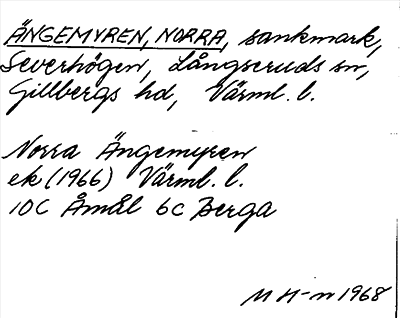 ÄNGEMYREN, NORRA, sankmark,
Severhögen, Långseruds sn,
Gillbergs hd, Värml. l.
Norra Ängemyren
ek (1966) Värml. l.
10C Åmål 6c Berga
M H-n 1968